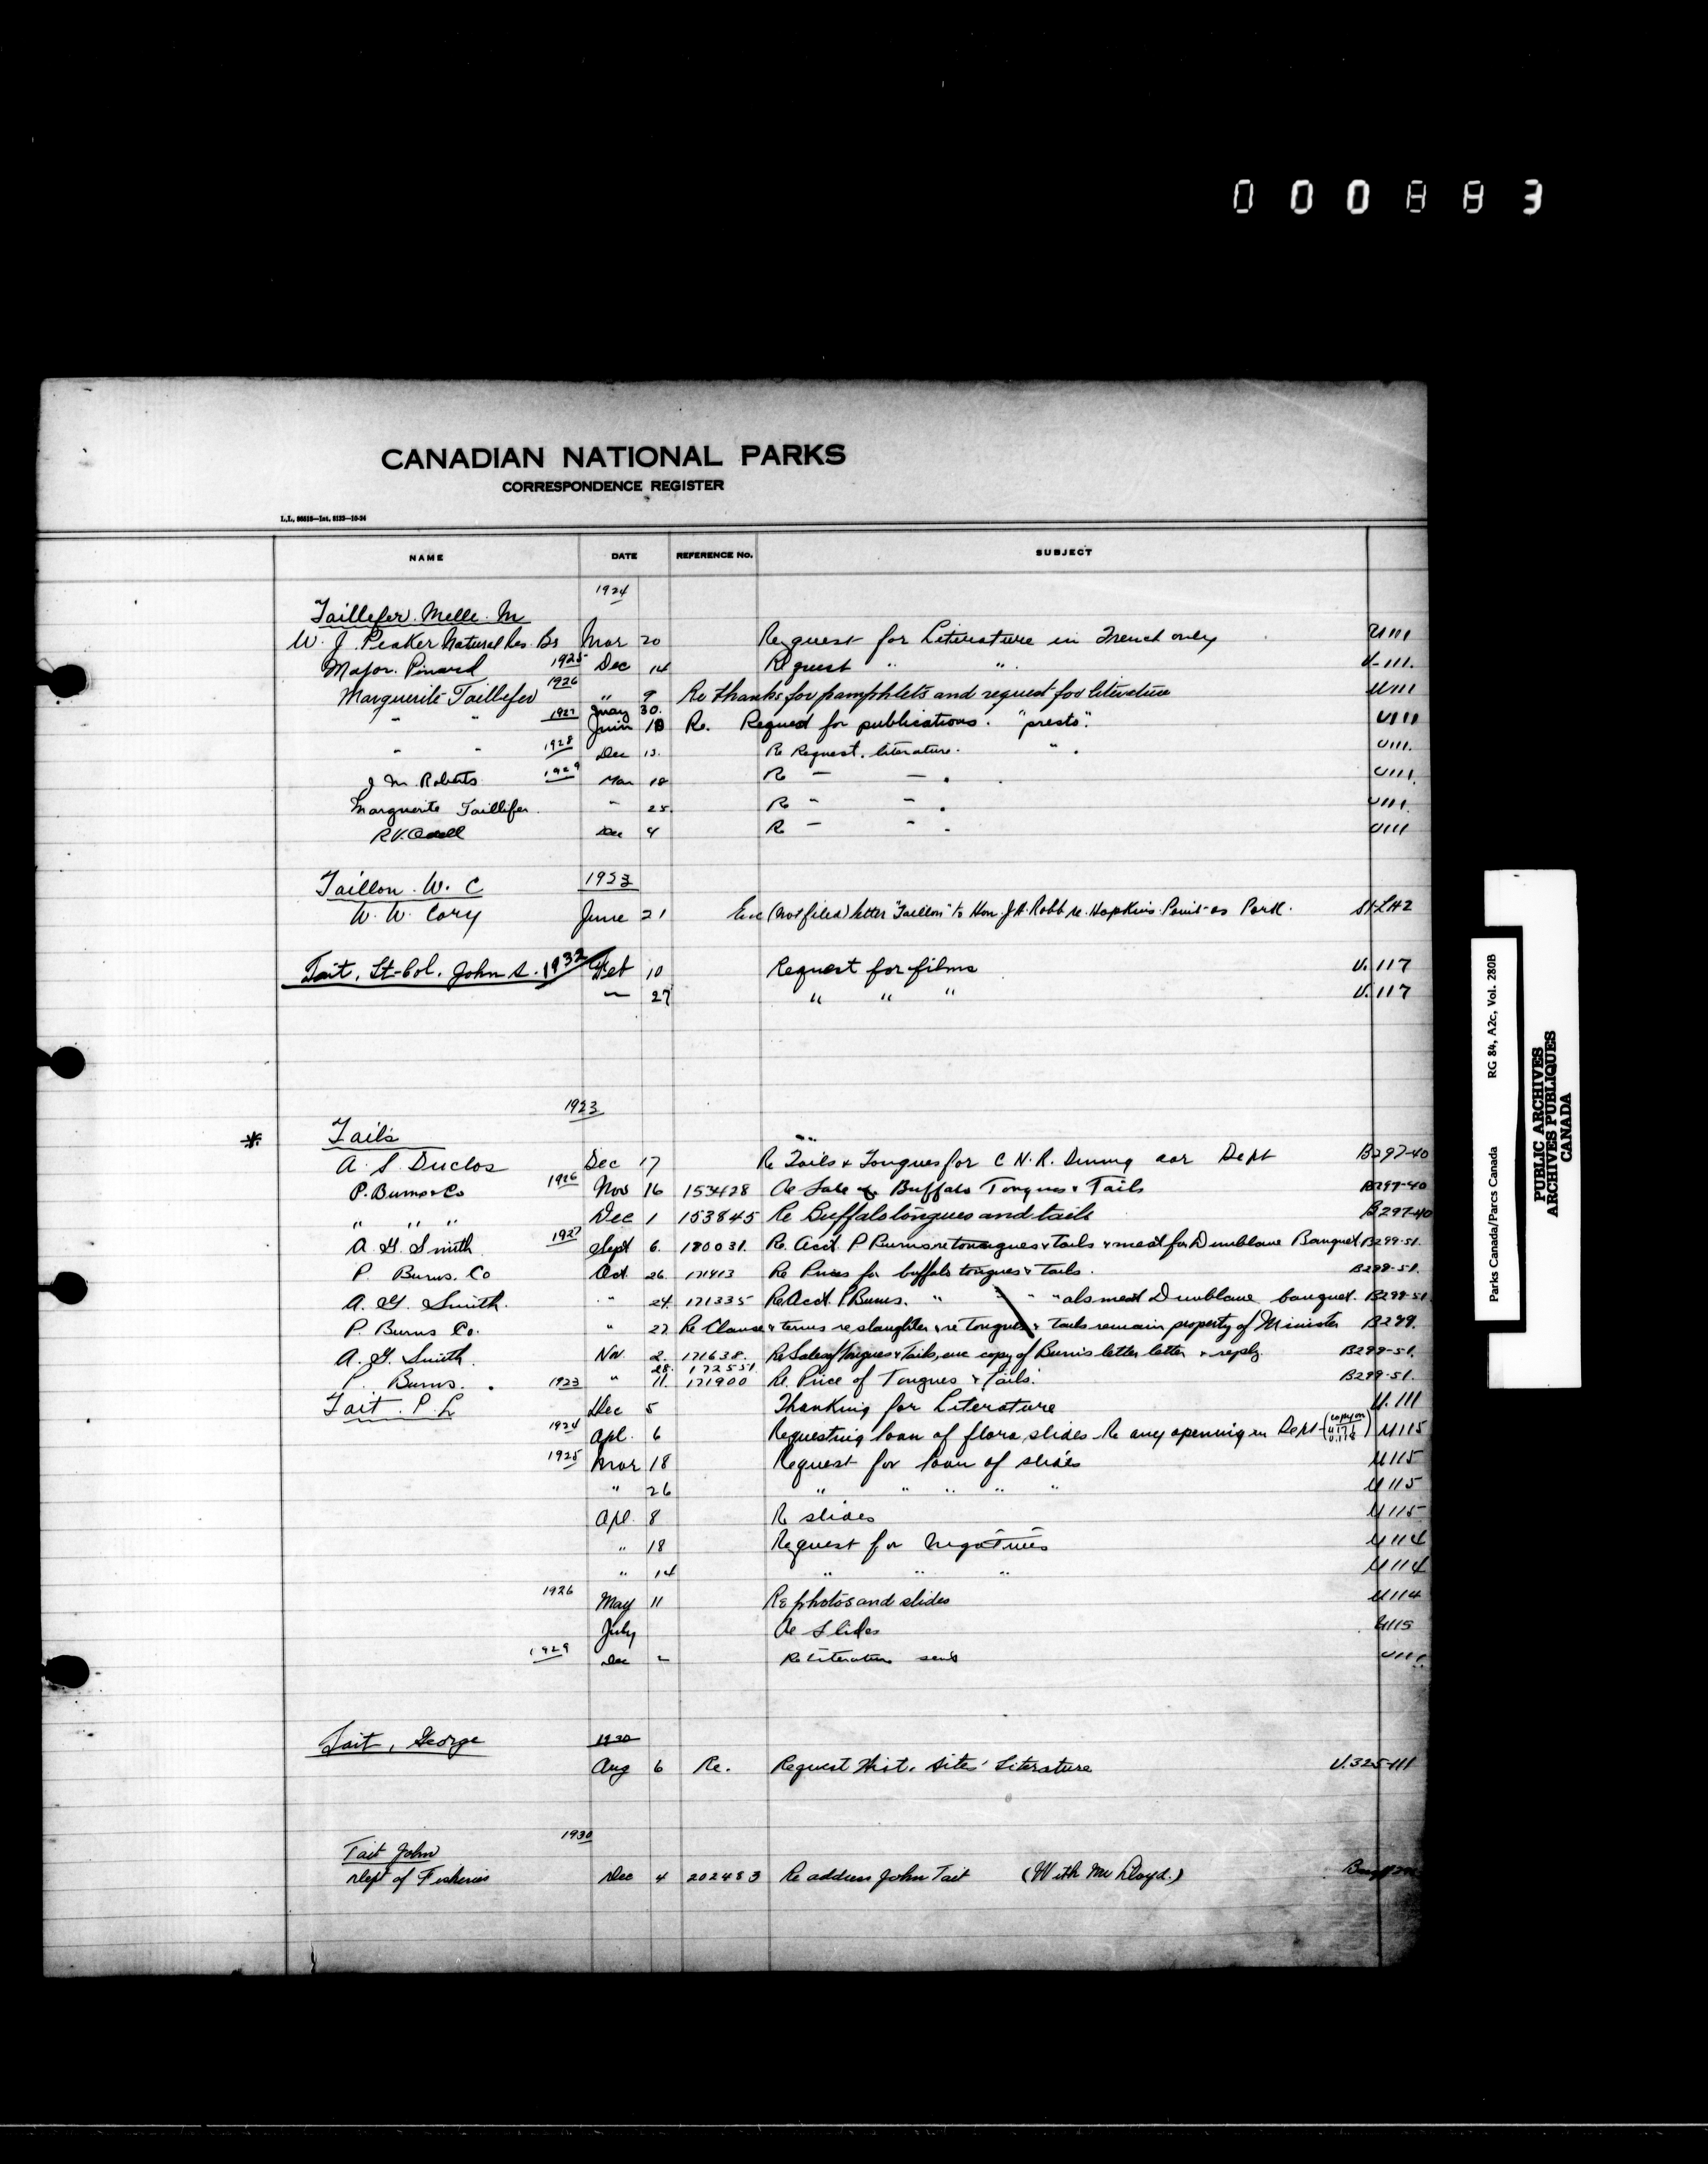 000883
CANADIAN NATIONAL PARKS
CORRESPONDENCE REGISTER
NAME DATE REFERENCE No. SUBJECT
1924
Taillefer. Melle. M
W. J. Peaker Natural Res. Br Mar 20 Request for Literature in French only U111
Major. Pinard 1925 Dec 14 Request " " U-111.
Marguerite Taillefer 1926 " 9 Re thanks for pamphlets and request for literature U111
30.
" " 1927 Juin 10 Re. Request for publications. "presto". U111
" " 1928 Dec 13. Re Request. literature. " . U111.
J M. Roberts 1929 Mar 18 Re " " . U111.
Marguerite Taillifer. " 25. Re " " . U111.
Dec 4 Re " " . U111
Taillon. W. C 1923
W. W. Cory June 21 Enc (not filed) letter "Taillon" to Hon. J A. Robb re. Hopkins Point as Park.
Tait, Lt-Col. John S. 1932 Feb 10 Request for films U. 117
" 27 " " " U. 117
1923
* Tails
A. S. Duclos Dec 17 Re Tails & Tongues for C. N. R. Dining car Dept B297-40
P. Burns & Co 1926 Nov 16 153428 Re Sale of Buffalo Tongues & Tails B297-40
" " " Dec 1 153845 Re Buffalo tongues and tails B297-40
A. G. Smith 1927 Sept 6. 180031. Re. Acct. P Burns re tongues & tails & meat for Dunblane Banquet B299-51.
P. Burns. Co Oct. 26. 171413 Re Prices for buffalo tongues & tails. B299-51.
A. G. Smith. " 24. 171335 Re Acct. P. Burns. " " " also meat Dunblane banquet. B299-51
P. Burns Co. " 27 Re Clause & terms re slaughter & re tongues & tails remain property of Minister B299.
A. G. Smith. Nov. 2. 171638. Re Sale of Tongues & Tails, enc copy of Burns letter letter & reply. B299-51.
28. 172551
P. Burns. " 11. 171900 Re. Price of Tongues & Tails. B299-51.
Tait. P. L 1923 Dec 5 Thanking for Literature U. 111
1924 Apl. 6 Requesting loan of flora slides - Re any opening in Dept - (copy on U.176) U115
1925 Mar 18 Request for loan of slides U115
" 26 " " " " U115
Apl. 8 Re slides U115
" 18 Request for Negatives U114
" 14 " " " U114
1926 May 11 Re photos and slides U114
July Re Slides U115
1929 Dec 2 Re Literature sent U111.
Tait, George 1930
Aug 6 Re. Request Hist. Sites' Literature U.325-111
1930
Tait John
Dept of Fisheries Dec 4 202483 Re address John Tait (With Mr Lloyd.)
Parks Canada/Parcs Canada RG 84, A2c, Vol. 280B
PUBLIC ARCHIVES
ARCHIVES PUBLIQUES
CANADA